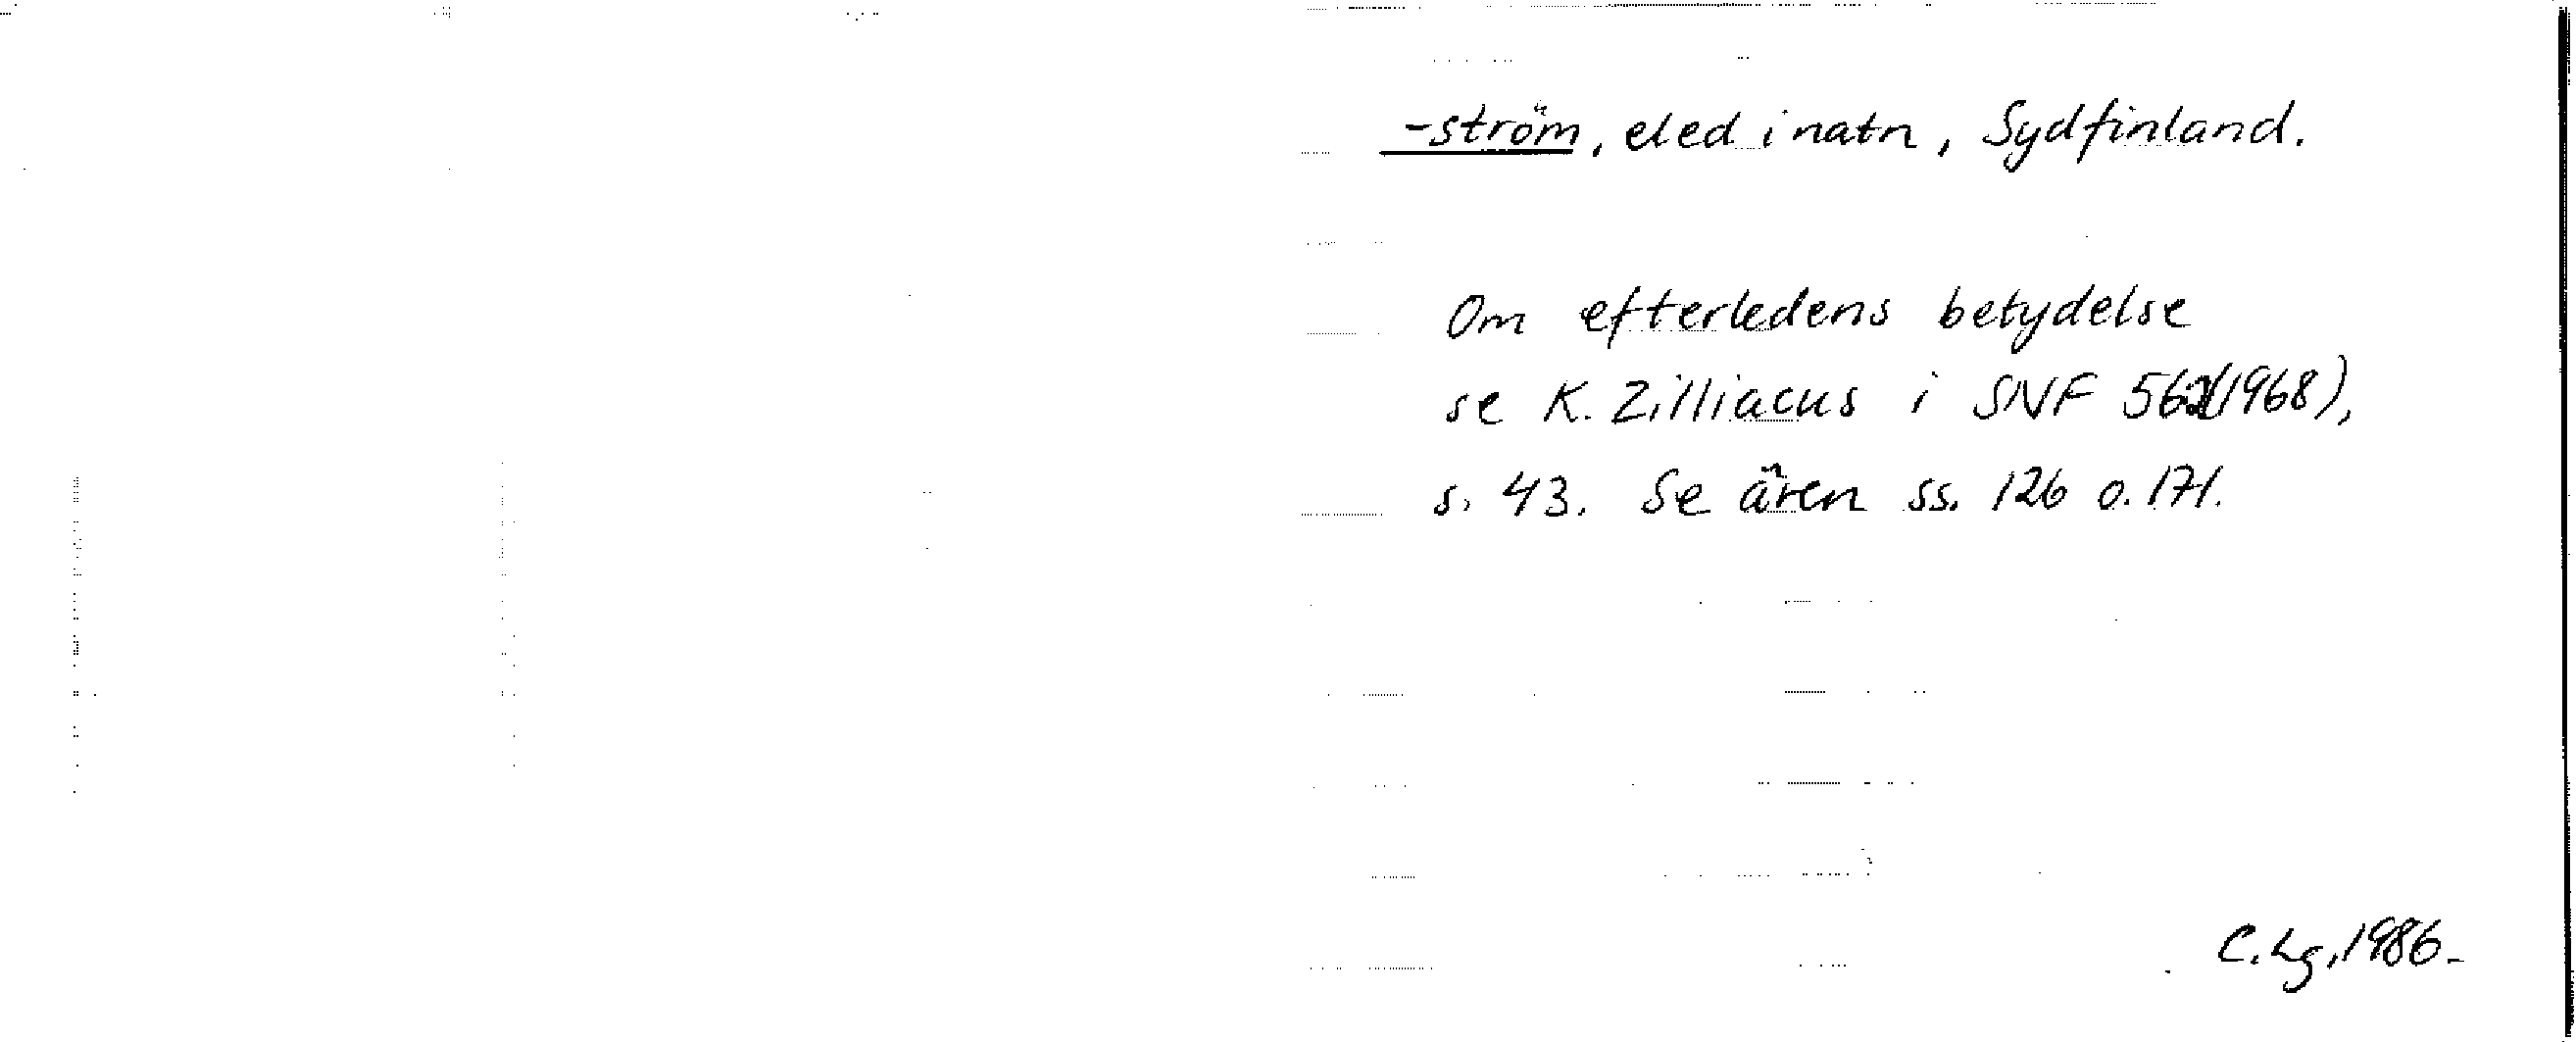 -ström, eled i natn, Sydfinland.
Om efterledens betydelse
se K. Zilliacus i SNF 56 (1968),
s. 43. Se även ss. 126 o. 171.
C. Lg, 1986.